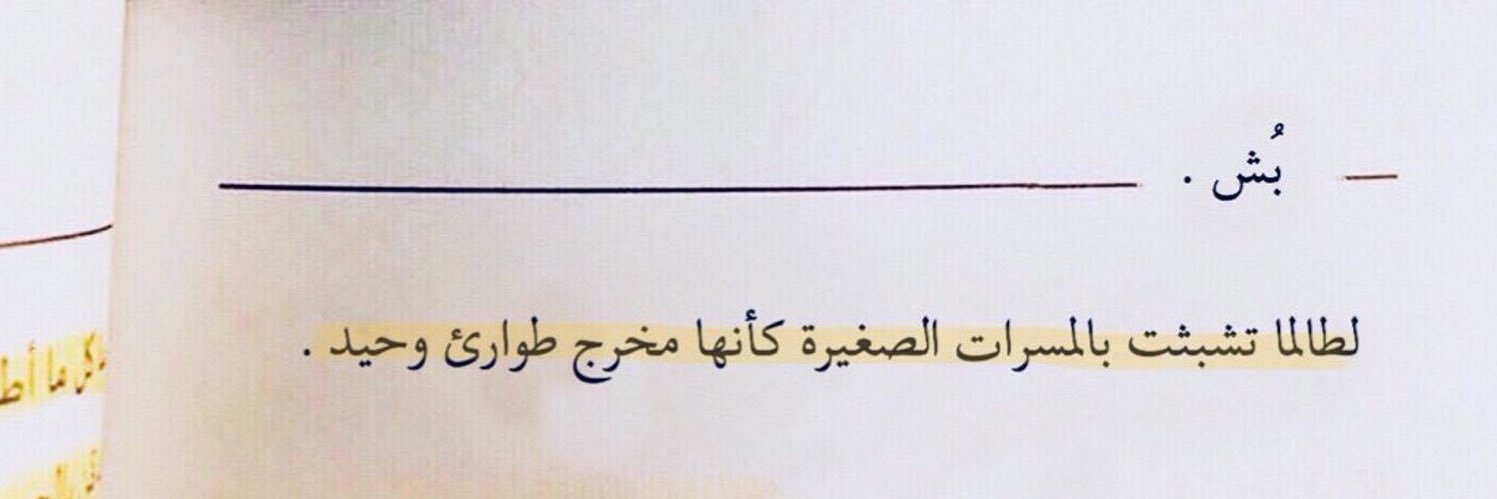 بُش .
لطالما تشبثت بالمسرات الصغيرة كأنها مخرج طوارئ وحيد .
كل ما